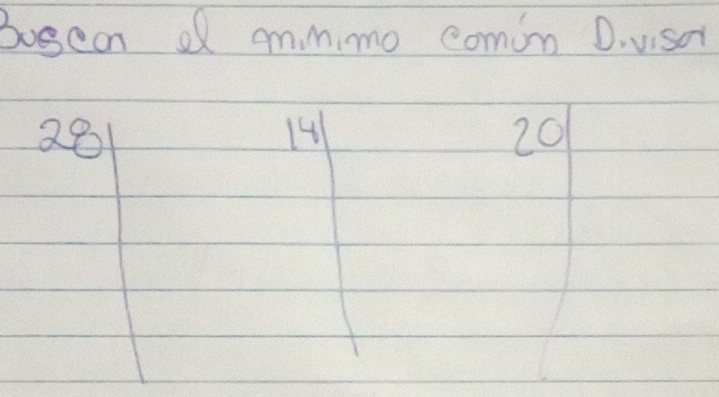 Buscan el minimo común Divisor
28 14 20